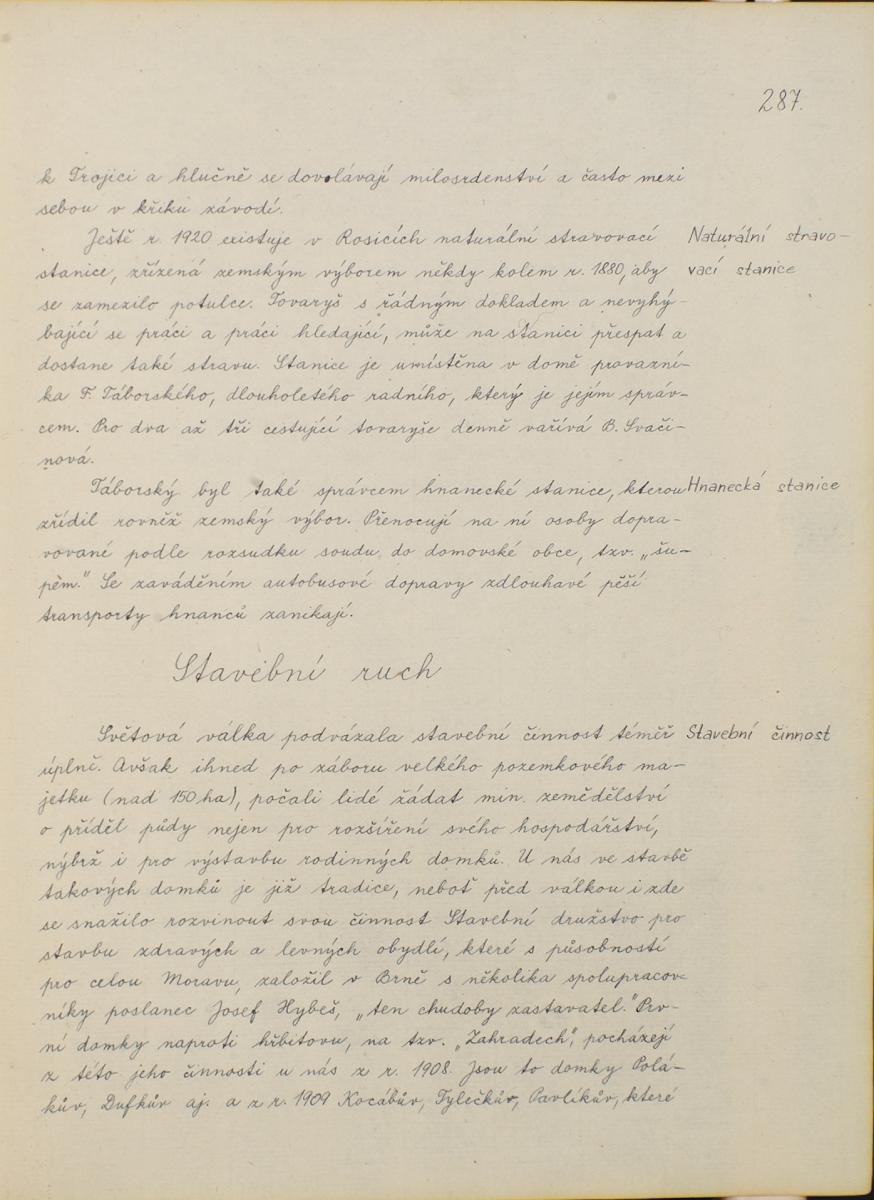 287.
k Trojici a hlučně se dovolávají milosrdenství a často mezi
sebou v křiku závodí.
Ještě r. 1920 existuje v Rosicích naturální stravovací
Naturální stravo-
stanice, zřízená zemským výborem někdy kolem r. 1880, aby
vací stanice
se zamezilo potulce. Tovaryš s řádným dokladem a nevyhý-
bající se práci a práci hledající, může na stanici přespat a
dostane také stravu. Stanice je umístěna v domě provazní-
ka F. Táborského, dlouholetého radního, který je jejím správ-
cem. Pro dva až tři cestující tovaryše denně vařívá B. Svači-
nová.
Táborský byl také správcem hnanecké stanice, kterou
Hnanecká stanice
zřídil rovněž zemský výbor. Přenocují na ní osoby dopra-
vované podle rozsudku soudu do domovské obce, tzv. „šu-
pěm." Se zaváděním autobusové dopravy zdlouhavé pěší
transporty hnanců zanikají.
Stavební ruch
Světová válka podvázala stavební činnost téměř
Stavební činnost
úplně. Avšak ihned po záboru velkého pozemkového ma-
jetku (nad 150 ha), počali lidé žádat min. zemědělství
o příděl půdy nejen pro rozšíření svého hospodářství,
nýbrž i pro výstavbu rodinných domků. U nás ve stavbě
takových domků je již tradice, neboť před válkou i zde
se snažilo rozvinout svou činnost Stavební družstvo pro
stavbu zdravých a levných obydlí, které s působností
pro celou Moravu, založil v Brně s několika spolupracov-
níky poslanec Josef Hybeš, „ten chudoby zastavatel." Prv-
ní domky naproti hřbitovu, na tzv. „Zahradech", pocházejí
z této jeho činnosti u nás z r. 1908. Jsou to domky Polá-
kův, Dufkův aj. a z r. 1909 Kocábův, Tylečkův, Pavlíkův, které